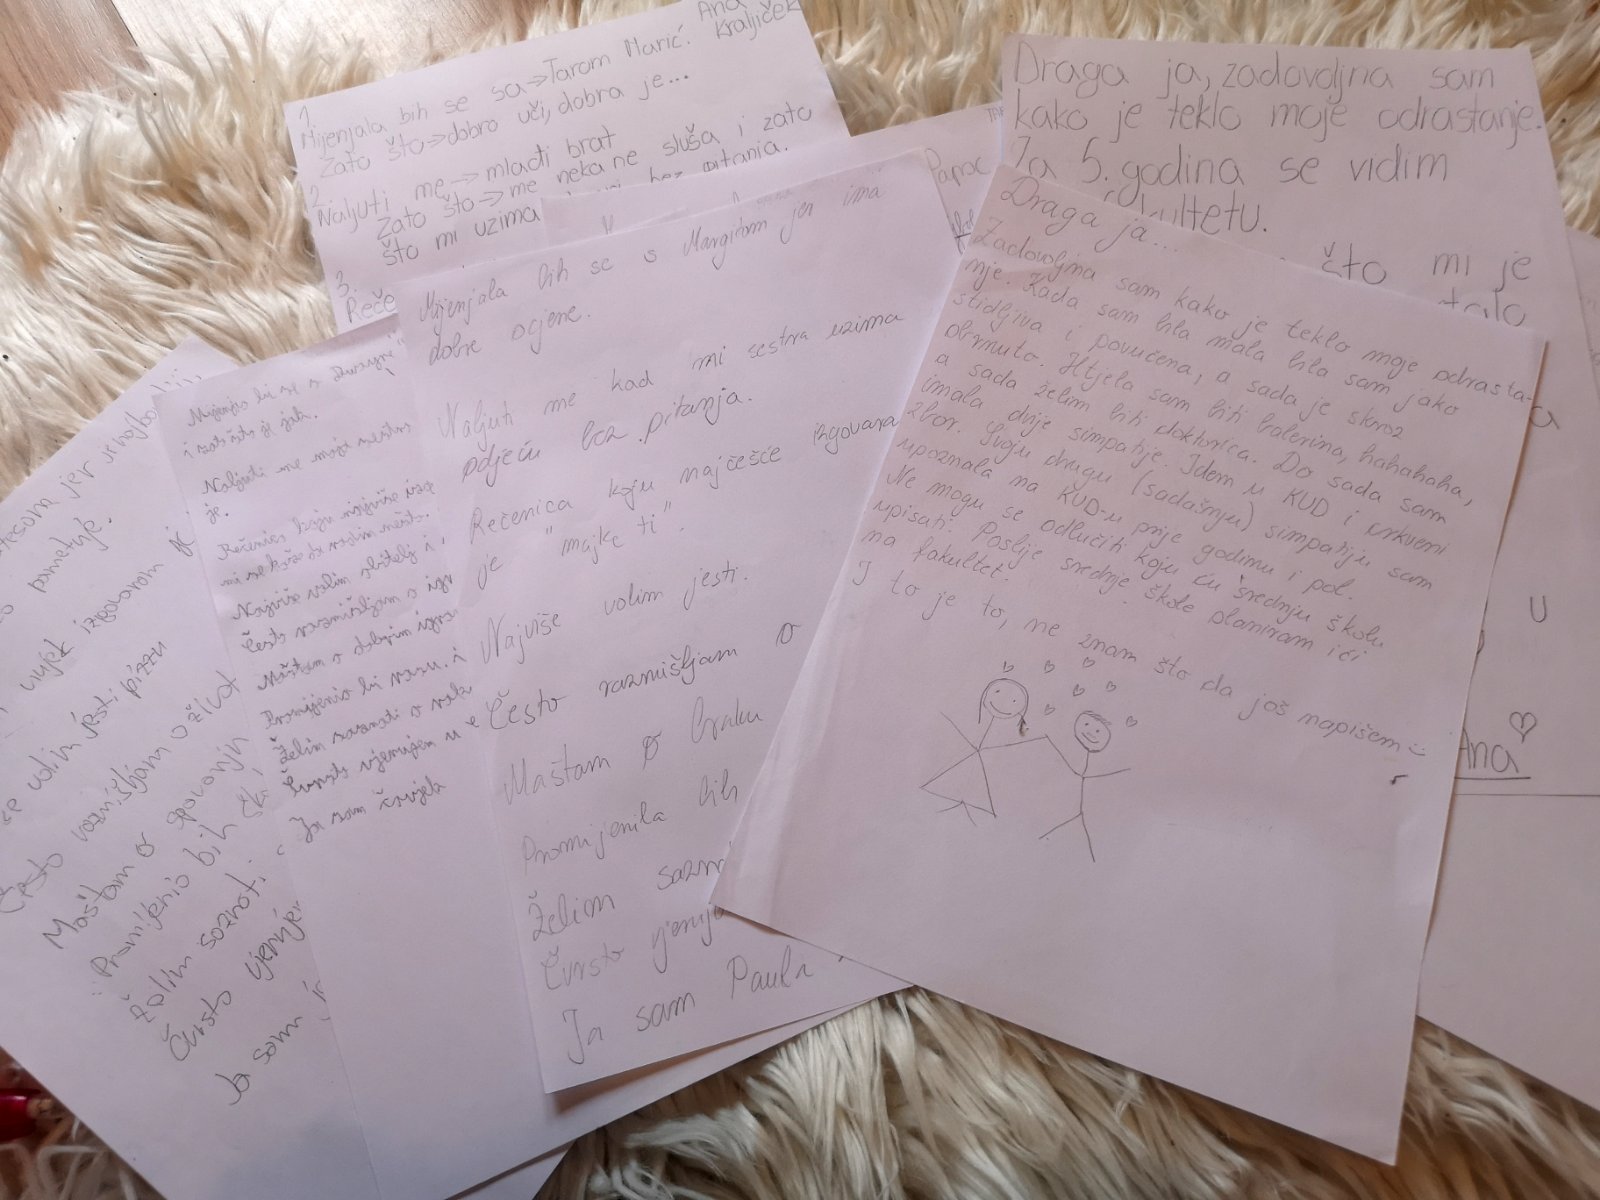 Ana
Kraljiček
1.
Mijenjala bih se sa→Tarom Marić.
Zato što→dobro uči, dobra je...
2.
Naljuti me→mlađi brat
Zato što→me neka ne sluša i zato
što mi uzima bez pitanja.
3.
Reče
Draga ja, zadovoljna sam
kako je teklo moje odrastanje.
Za 5. godina se vidim
kultetu.
što mi je
U
Ana
Draga ja...
Zadovoljna sam kako je teklo moje odrasta-
nje. Kada sam bila mala bila sam jako
stidljiva i povučena, a sada je skroz
obrnuto. Htjela sam biti balerina, hahahaha,
a sada želim biti doktorica. Do sada sam
imala dvije simpatije. Idem u KUD i crkveni
zbor. Svoju drugu (sadašnju) simpatiju sam
upoznala na KUD-u prije godinu i pol.
Ne mogu se odlučiti koju ću srednju školu
upisati. Poslije srednje škole planiram ići
na fakultet.
I to je to, ne znam što da još napišem
Mijenjala bih se s Margitom jer ima
dobre ocjene.
Naljuti me kad mi sestra uzima
odjeću bez pitanja.
Rečenica koju najčešće izgovara
je "majke ti".
Najviše volim jesti.
Često razmišljam o
Maštam o braku
Promijenila bih
Želim sazn
Čvrsto vjeruj
Ja sam Paula
Mijenjao bi se s
i zato što je jak.
Naljuti me moja sestra
je.
Rečenica koju najviše izgo
mi se kaže da radim nešto.
Najviše volim obitelj i
Često razmišljam o igr
Maštam o dobrim igra
Promijenio bi
Želim saznati o
Čvrsto vjerujem u
Ja sam čovjek
pametnije.
uvijek izgovorom je
se volim jesti pizzu
Često razmišljam o život
Maštam o
Promijenio bih
Želim saznati
Čvrsto vjeruje
Ja sam